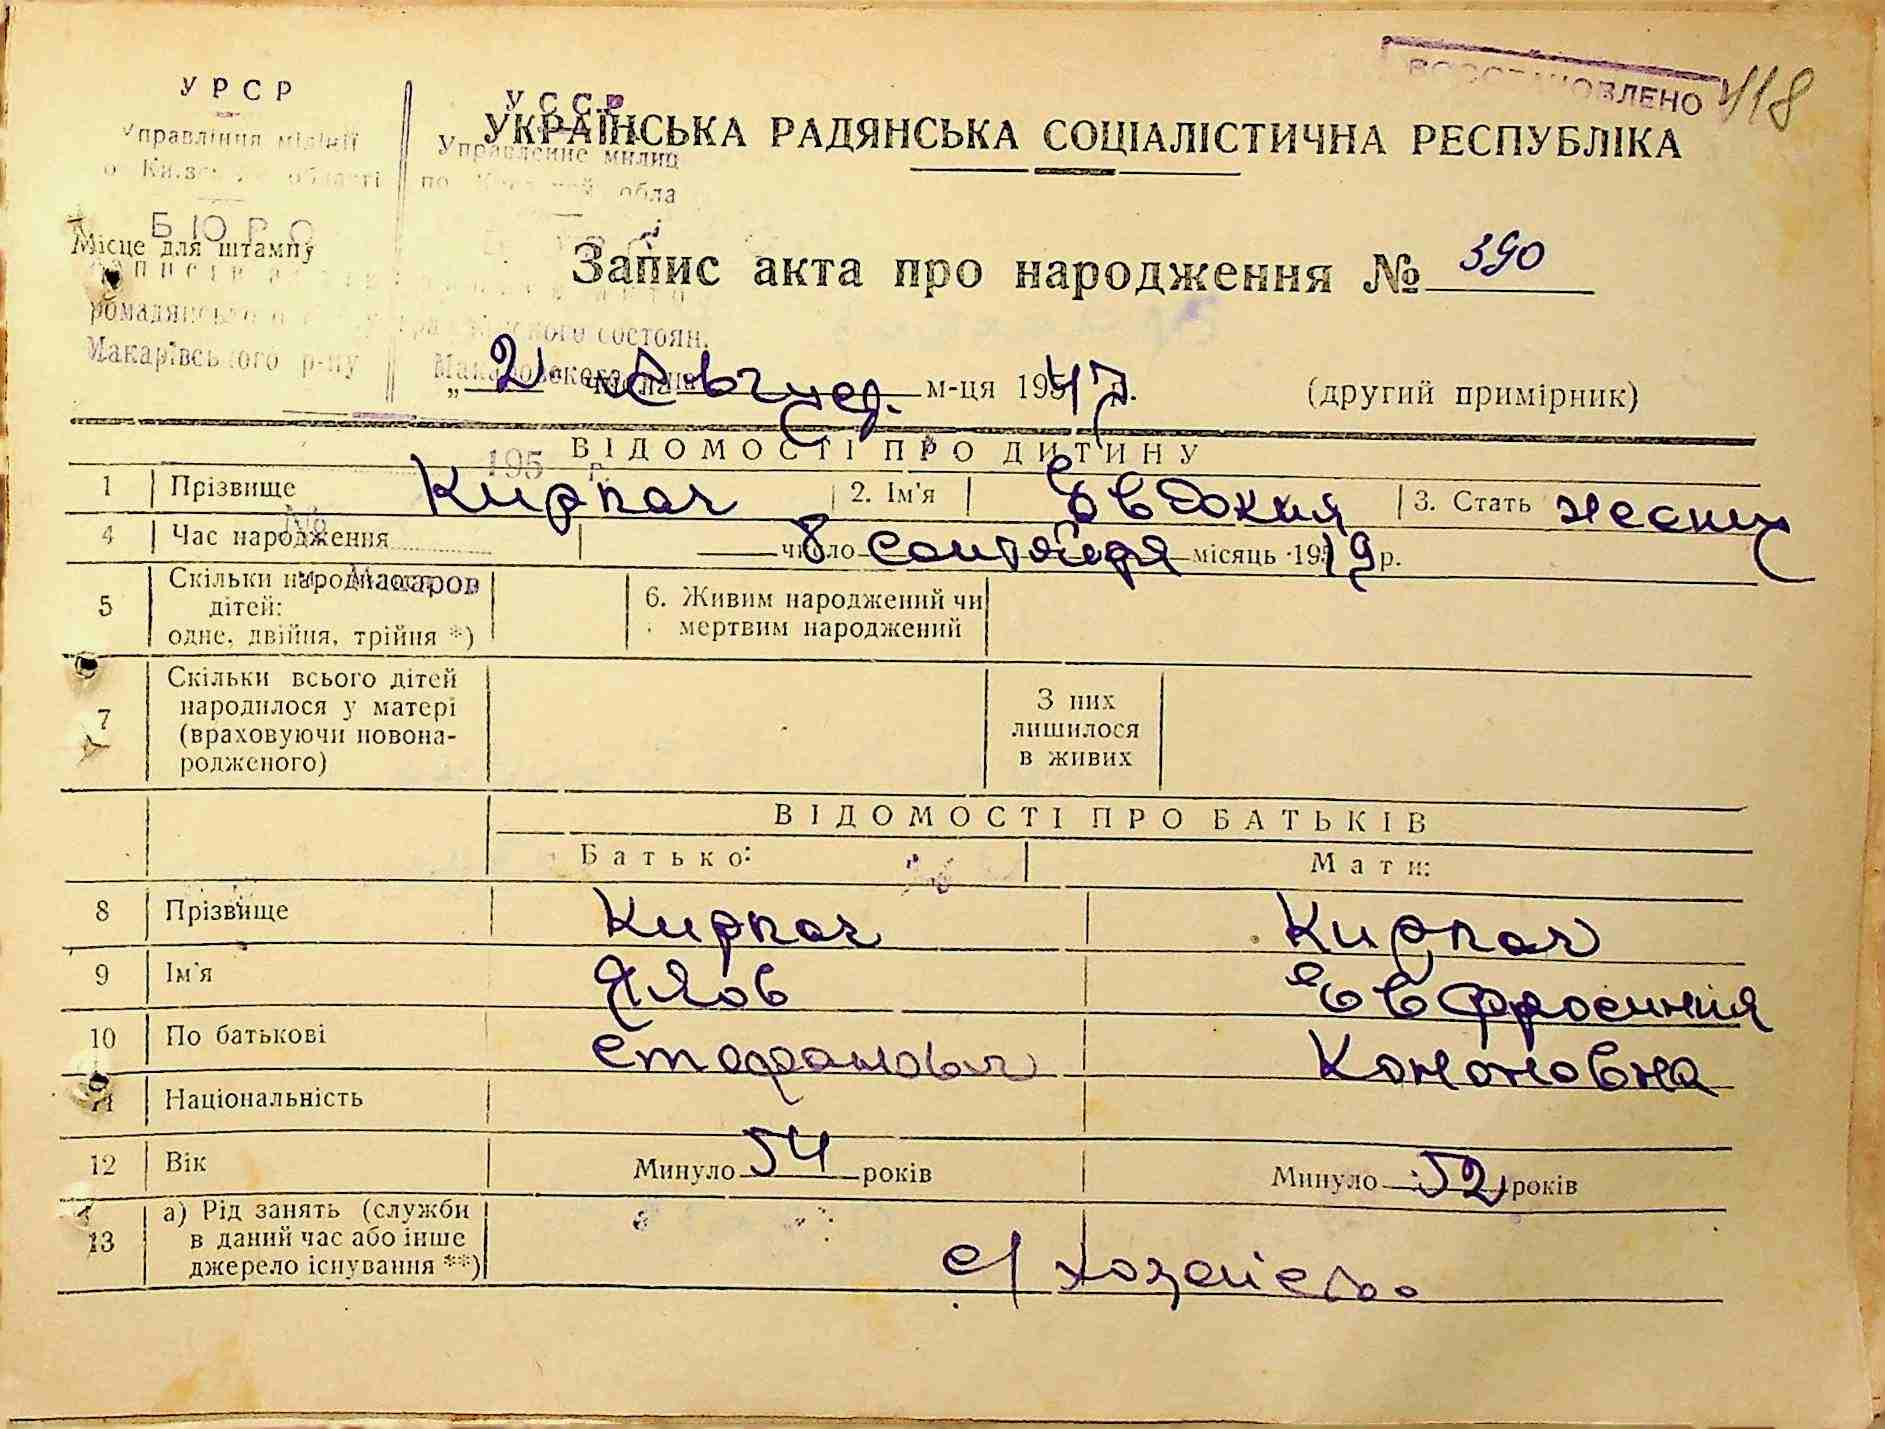 ВОССТАНОВЛЕНО 418
УРСР
Управління міліції
по Київській області
БЮРО
записів актів
громадянського стану
Макарівського р-ну
УССР
Управление милиц
по Киевской обла
гражданского состоян.
Макаровского района
195 г.
№
м. Макаров
УКРАЇНСЬКА РАДЯНСЬКА СОЦІАЛІСТИЧНА РЕСПУБЛІКА
Місце для штампу
Запис акта про народження № 390
„2“ числа Август. м-ця 1947 р. (другий примірник)
ВІДОМОСТІ ПРО ДИТИНУ
1 Прізвище Кирпач 2. Ім'я Евдокия 3. Стать женск
4 Час народження 8 число сентября місяць 1919 р.
5 Скільки народилося дітей: одне, двійня, трійня *) 6. Живим народжений чи мертвим народжений
7 Скільки всього дітей народилося у матері (враховуючи новонародженого) З них лишилося в живих
ВІДОМОСТІ ПРО БАТЬКІВ
Батько: Мати:
8 Прізвище Кирпач Кирпач
9 Ім'я Яков Евфросиния
10 По батькові Стефанович Кононовна
11 Національність
12 Вік Минуло 54 років Минуло 52 років
13 а) Рід занять (служби в даний час або інше джерело існування **) с/хозяйство